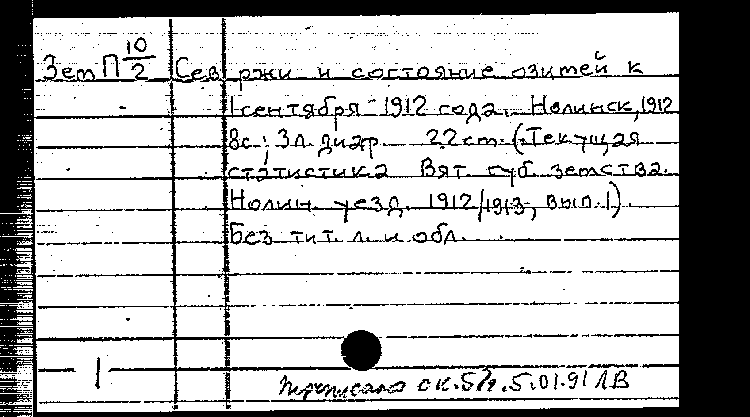 Зем П 10/2 Сев ржи и состояние озитей к
1 сентября 1912 года. Нолинск, 1912
8с; 3л. диагр. 22 см. (Текущая
статистика Вят. губ. земства.
Нолин. уезд. 1912/1913, вып. 1).
Без тит. л. и обл.
1
5.01.91 ЛВ